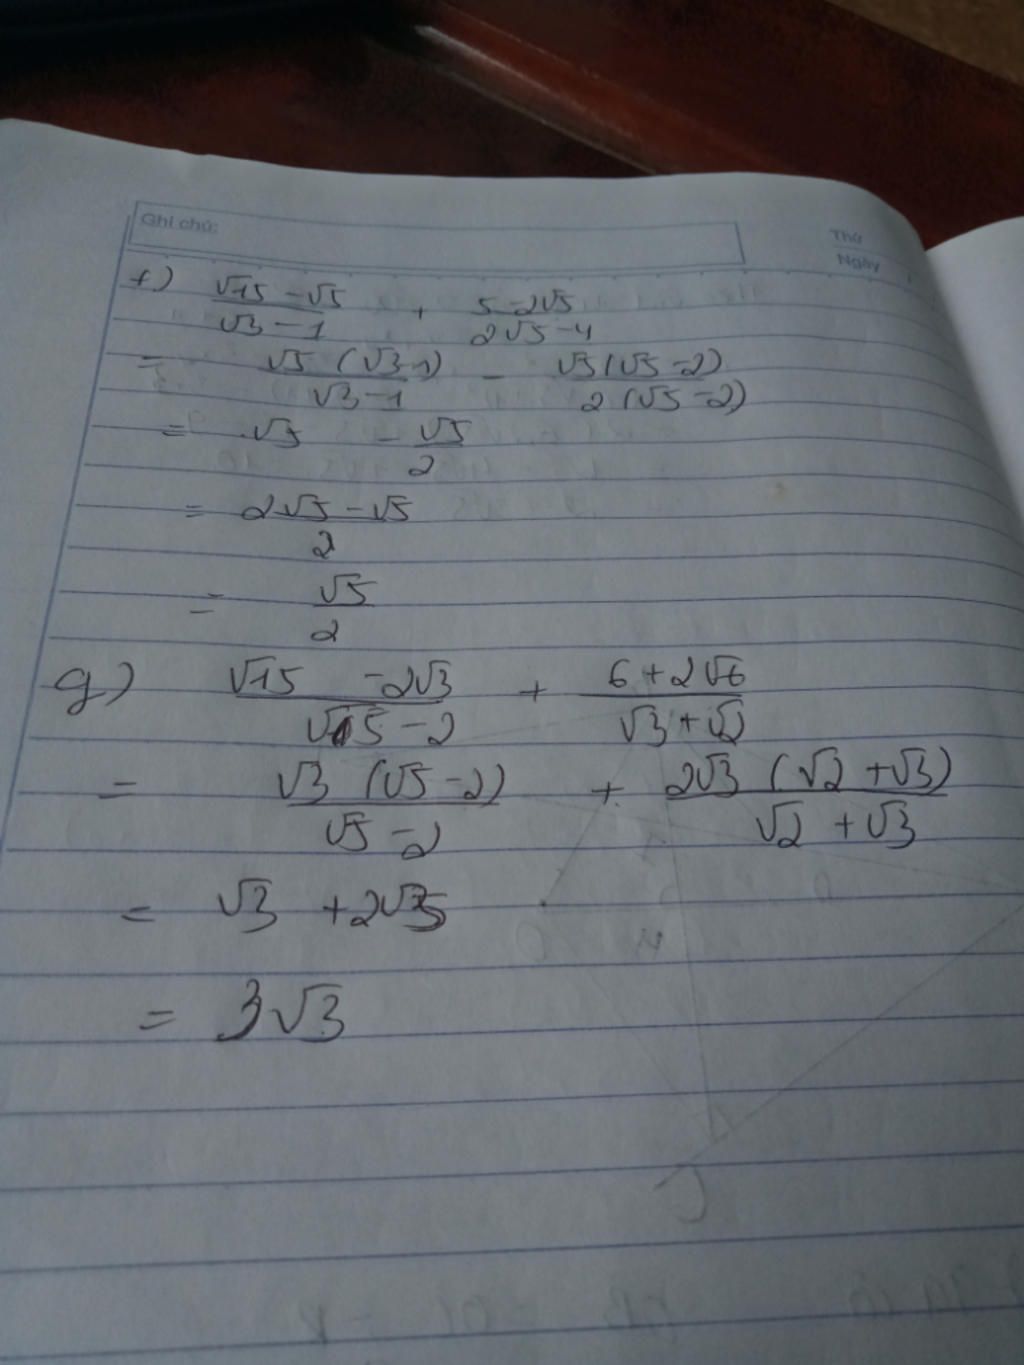 Ghi chú:
Thứ
Ngày
f) (√15 - √5)/(√3 - 1) + (5 - 2√5)/(2√5 - 4)
= √5 (√3-1)/(√3 - 1) - √5(√5 - 2)/(2(√5 - 2))
= √5 - √5/2
= (2√5 - √5)/2
= √5/2
g) (√15 - 2√3)/(√5 - 2) + (6 + 2√6)/(√3 + √2)
= √3 (√5 - 2)/(√5 - 2) + 2√3 (√2 + √3)/(√2 + √3)
= √3 + 2√3
= 3√3